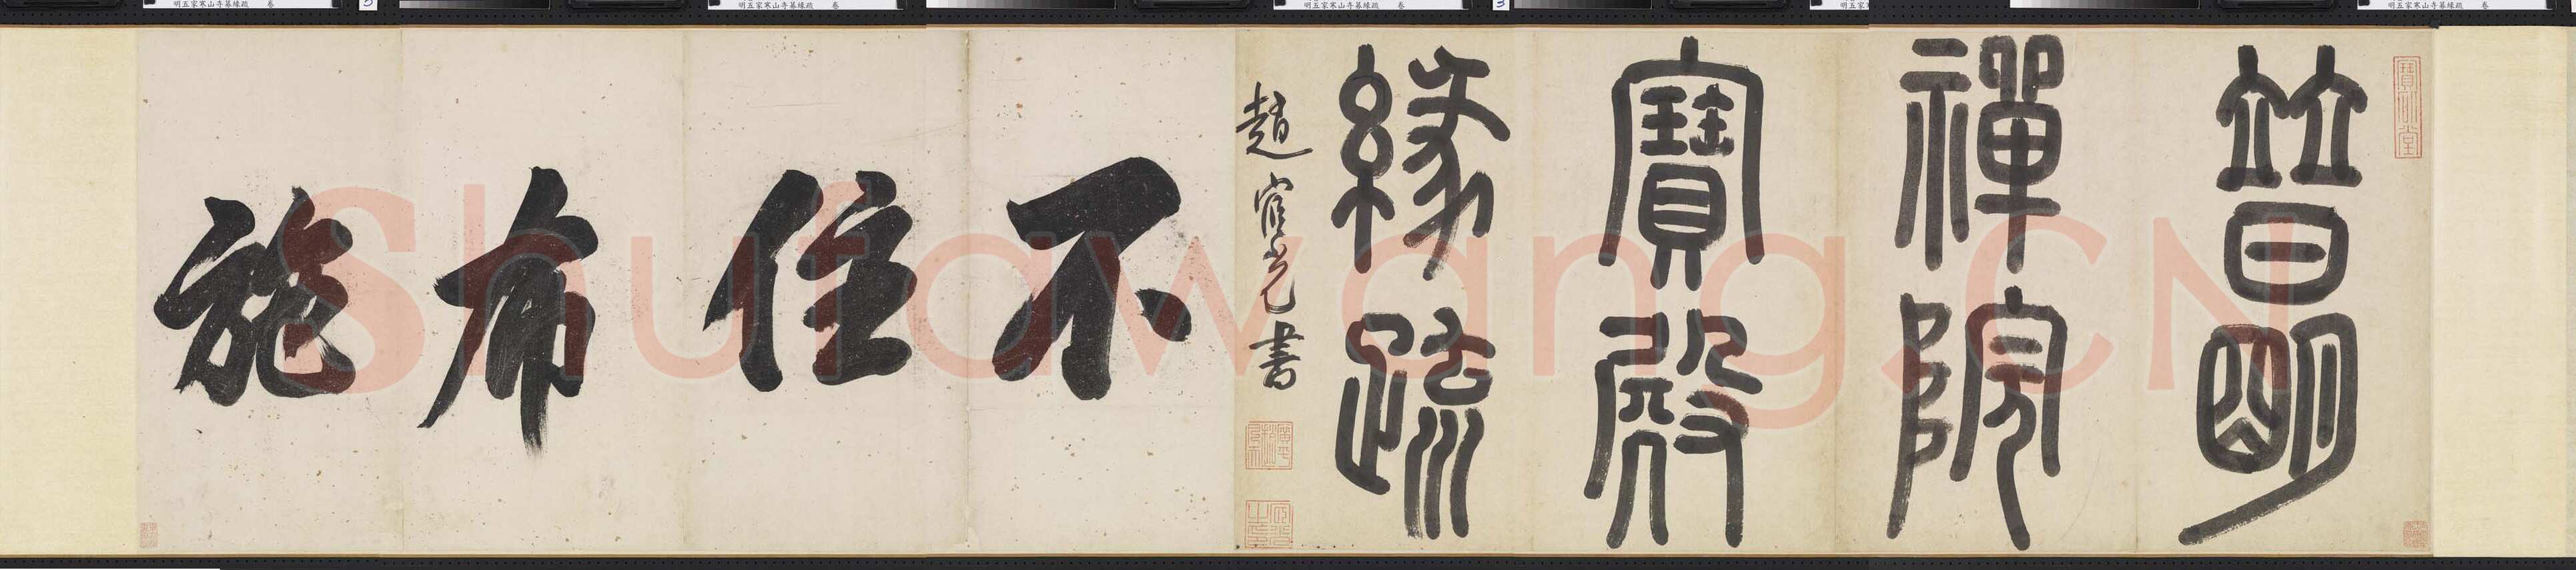 普明
禪院
寶殿
緣疏
趙宦光書
不
住
布
施
寶川堂
明五家寒山寺募緣疏 卷
明五家寒山寺募緣疏 卷
明五家寒山寺募緣疏 卷
明五家寒山寺募
明五家寒山寺募緣疏 卷
Shufawang.CN